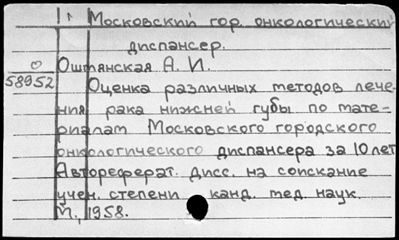 Московский гор. онкологический
диспансер.
Оштянская А. И.
58952
Оценка различных методов лече-
ния рака нижней губы по мате-
риалам Московского городского
онкологического диспансера за 10 лет
Автореферат. дисс. на соискание
учен. степени канд. мед. наук.
М., 1958.